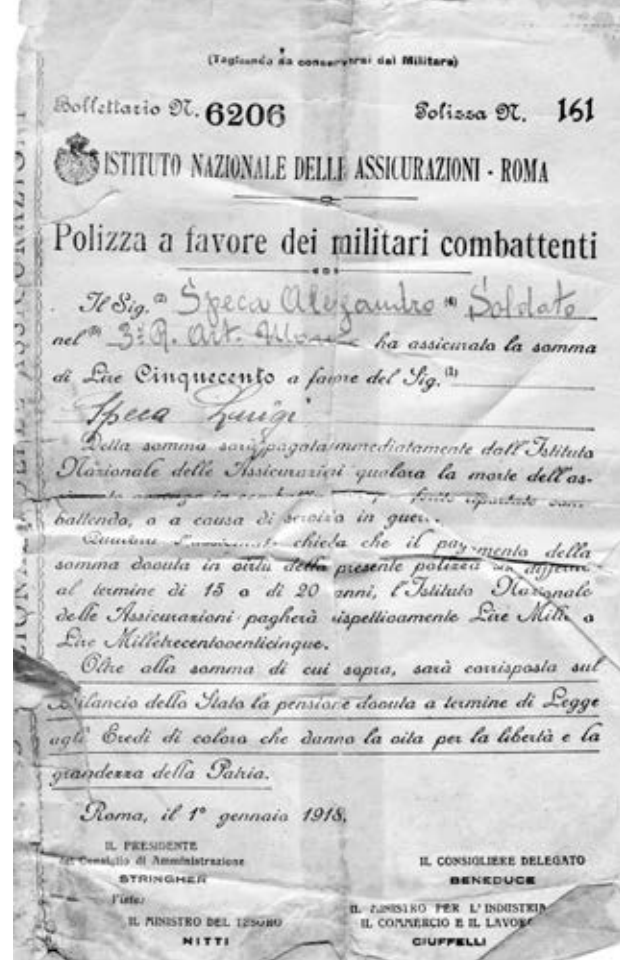 (Tagliando da conservarsi dal Militare)
Bollettario N. 6206 Polizza N. 161
ISTITUTO NAZIONALE DELLE ASSICURAZIONI - ROMA
Polizza a favore dei militari combattenti
Il Sig. Speca Soldato
nel 3º R. Art. ha assicurato la somma
di Lire Cinquecento a favore del Sig. (1)
Speca Luigi
Della somma sarà pagata immediatamente dall'Istituto
Nazionale delle Assicurazioni qualora la morte dell'as-
in ferite riportate com-
battendo, o a causa di servizio in guerra.
chieda che il pagamento della
somma dovuta in virtù della presente polizza sia
al termine di 15 o di 20 anni, l'Istituto Nazionale
delle Assicurazioni pagherà rispettivamente Lire Mille o
Lire Milletrecentoventicinque.
Oltre alla somma di cui sopra, sarà corrisposta sul
Bilancio dello Stato la pensione dovuta a termine di Legge
agli Eredi di coloro che danno la vita per la libertà e la
grandezza della Patria.
Roma, il 1º gennaio 1918.
IL PRESIDENTE
del Consiglio di Amministrazione
STRINGHER
IL CONSIGLIERE DELEGATO
BENEDUCE
Visto:
IL MINISTRO DEL TESORO
NITTI
IL MINISTRO PER L'INDUSTRIA
IL COMMERCIO E IL LAVORO
CIUFFELLI